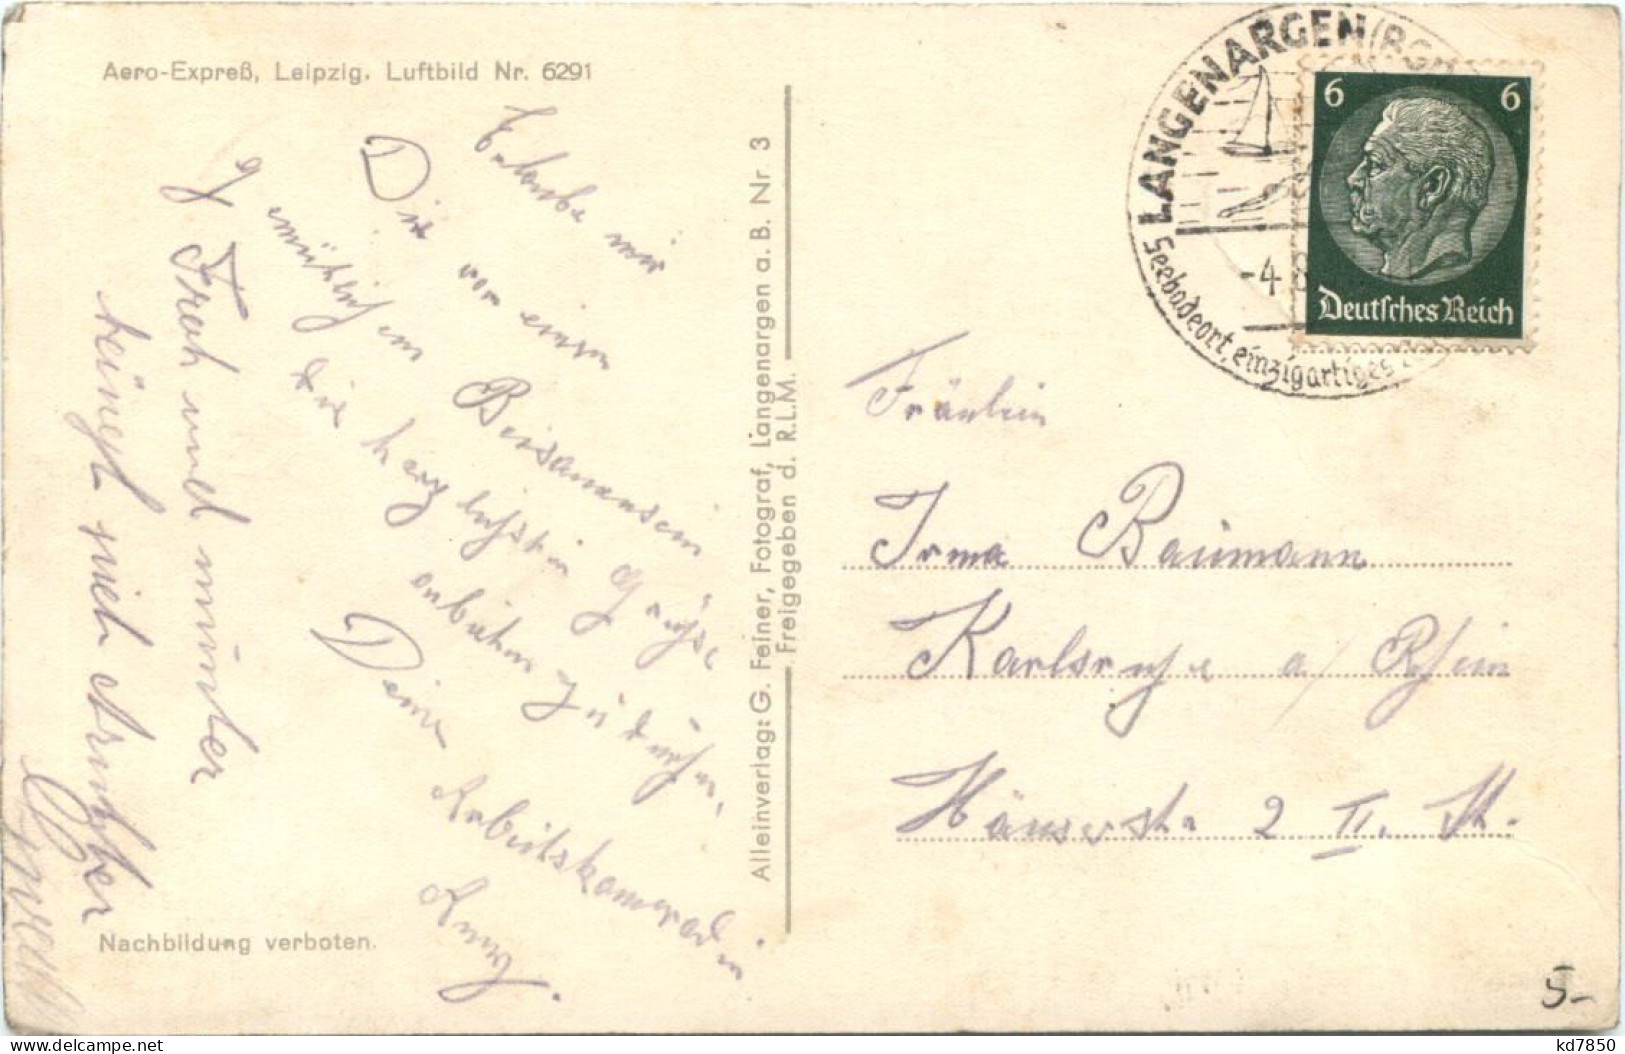 Aero-Expreß, Leipzig. Luftbild Nr. 6291
Erlaube mir
Dir von einem
gemütlichen Beisammensein
die herzlichsten Grüße
entbieten zu dürfen,
Deine
Arbeitskameradin
Anny.
Froh und munter
Nachbildung verboten.
Alleinverlag: G. Feiner, Fotograf, Langenargen a. B. Nr 3
Freigegeben d. R.L.M.
LANGENARGEN
Seebadeort, einzigartiges
-4
6 6
Deutsches Reich
Fräulein
Irma Baumann
Karlsruhe a/ Rhein
2 II. St.
5-
kd7850